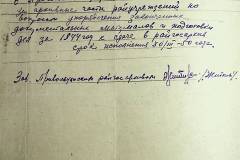 архивные части райучреждений по
вопросу упорядочения законченных
документальных материалов и подготовки
дел за 1944 год к сдаче в райгосархив
срок исполнения 30/III-50 года.
Зав. Приволжским райгосархивом